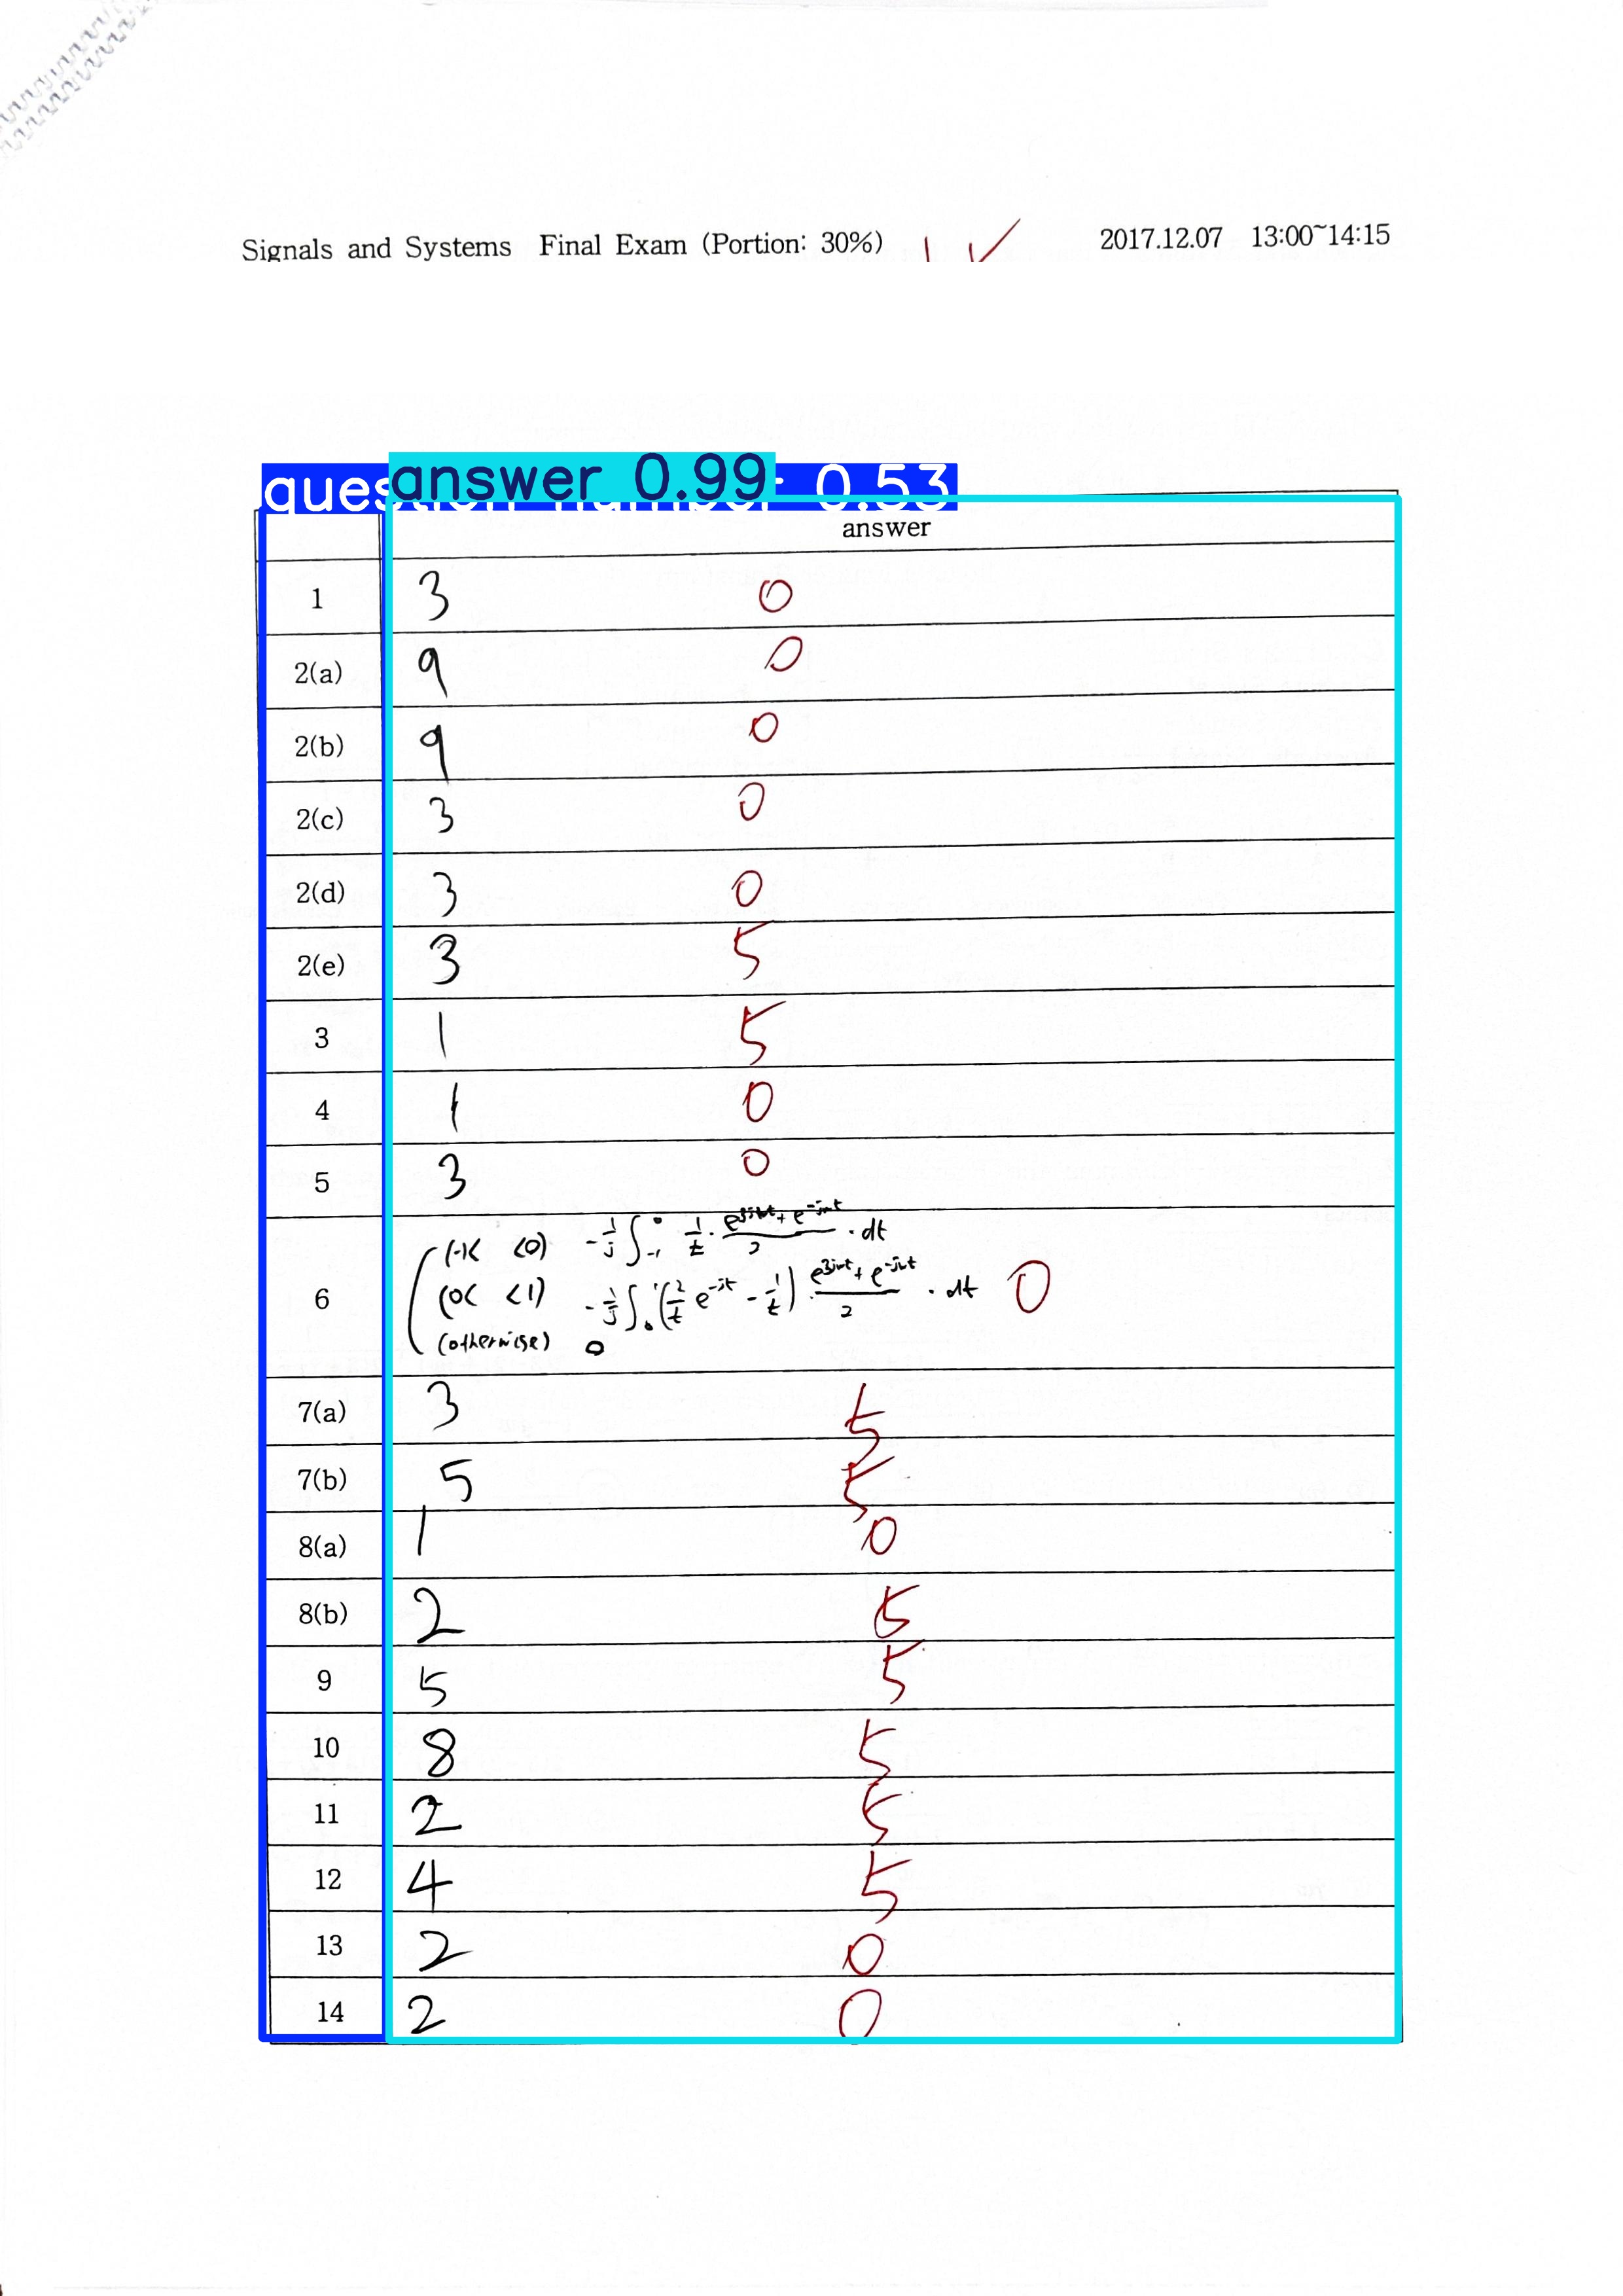 Signals and Systems Final Exam (Portion: 30%) 2017.12.07 13:00~14:15
answer 0.99 0.53
answer
1 3 0
2(a) 9 0
2(b) 9 0
2(c) 3 0
2(d) 3 0
2(e) 3 5
3 1 5
4 1 0
5 3 0
(-1< <0) -1/j ∫_{-1}^{0} 1/t · (e^{3jwt} + e^{-jwt})/2 · dt
6 (0< <1) -1/j ∫_{0}^{1} (2/t e^{-jt} - 1/t) · (e^{3jwt} + e^{-jwt})/2 · dt 0
(otherwise) 0
7(a) 3 5
7(b) 5 5
8(a) 1 0
8(b) 2 5
9 5 5
10 8 5
11 2 5
12 4 5
13 2 0
14 2 0